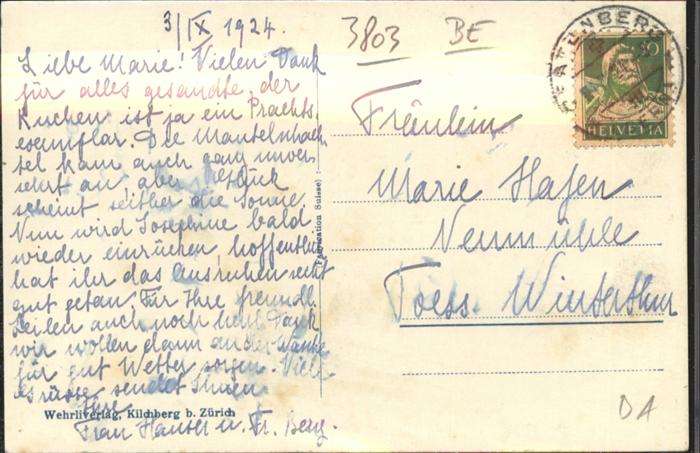 3/IX 1924.
Liebe Marie! Vielen Dank
für alles gesandte, der
Kuchen ist ja ein Prachts
exemplar. Die Mantelschach
tel kam auch ganz unver
sehrt an, aber
scheint seither die Sonne.
Nun wird Josephine bald
wieder einrücken, hoffentlich
hat ihr das Ausruhen recht
gut getan. Für Ihre freundl.
Zeilen auch noch herzl. Dank
wir wollen dann an der
für gut Wetter sorgen. Viele
Grüsse sendet Ihnen
Ihre
Frau Hauser u. Fr. Berg.
Wehrliverlag, Kilchberg b. Zürich
(Fabrication Suisse)
3803 BE
HELVETIA
Fräulein
Marie Hafen
Neumühle
Toess. Winterthur
DA